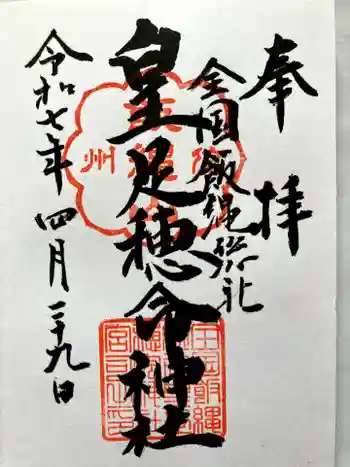 奉拝
全国飯縄総社
皇足穂命神社
令和七年四月二十九日